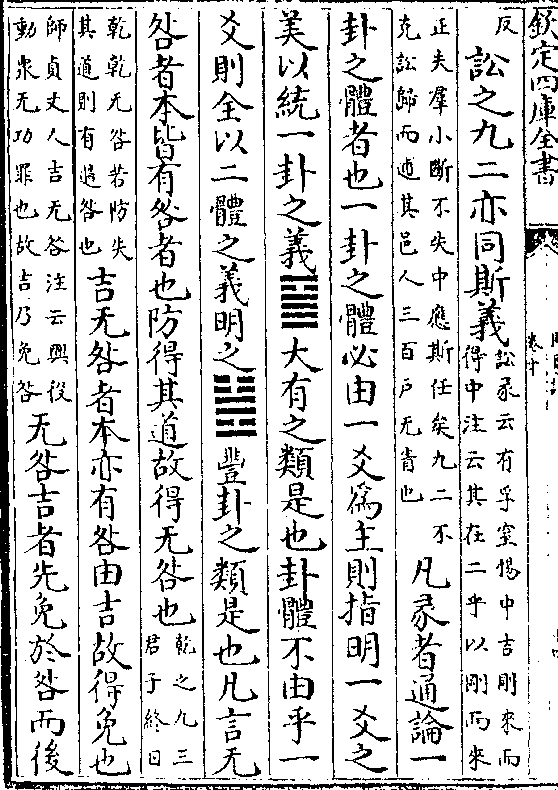 欽定四庫全書
反
訟之九二亦同斯義
訟彖云有孚窒惕中吉剛來而
得中注云其在二乎以剛而來
正夫羣小斷不失中應斯任矣九二不
克訟歸而逋其邑人三百戶无眚也
凡彖者通論一
卦之體者也一卦之體必由一爻為主則指明一爻之
美以統一卦之義䷍大有之類是也卦體不由乎一
爻則全以二體之義明之䷶豐卦之類是也凡言无
咎者本皆有咎者也防得其道故得无咎也
乾之九三
君子終日
乾乾无咎若防失
其道則有過咎也
吉无咎者本亦有咎由吉故得免也
師貞丈人吉无咎注云興役
動衆无功罪也故吉乃免咎
无咎吉者先免於咎而後